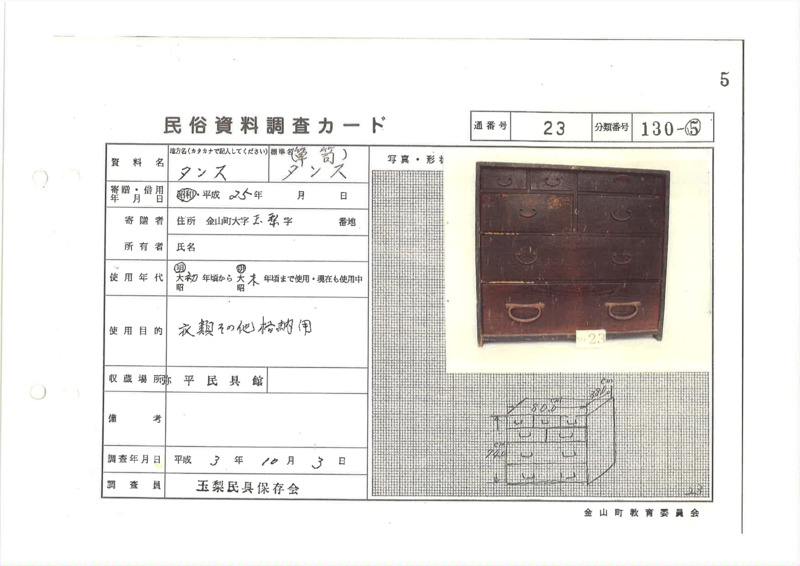 5
民俗資料調査カード
通番号 23 分類番号 130-⑤
資料名 地方名(カタカナで記入してください) タンス 標準名 (箪笥) タンス
写真・形状
寄贈・借用年月日 昭和・平成 25年 月 日
寄贈者 住所 金山町大字 玉梨 字 番地
所有者 氏名
使用年代 明 大 昭 初 年頃から 明 大 昭 末 年頃まで使用・現在も使用中
使用目的 衣類その他格納用
収蔵場所 弥平民具館
備考
調査年月日 平成 3 年 10 月 3 日
調査員 玉梨民具保存会
23
cm
80.0
cm
cm
74.0
23
金山町教育委員会